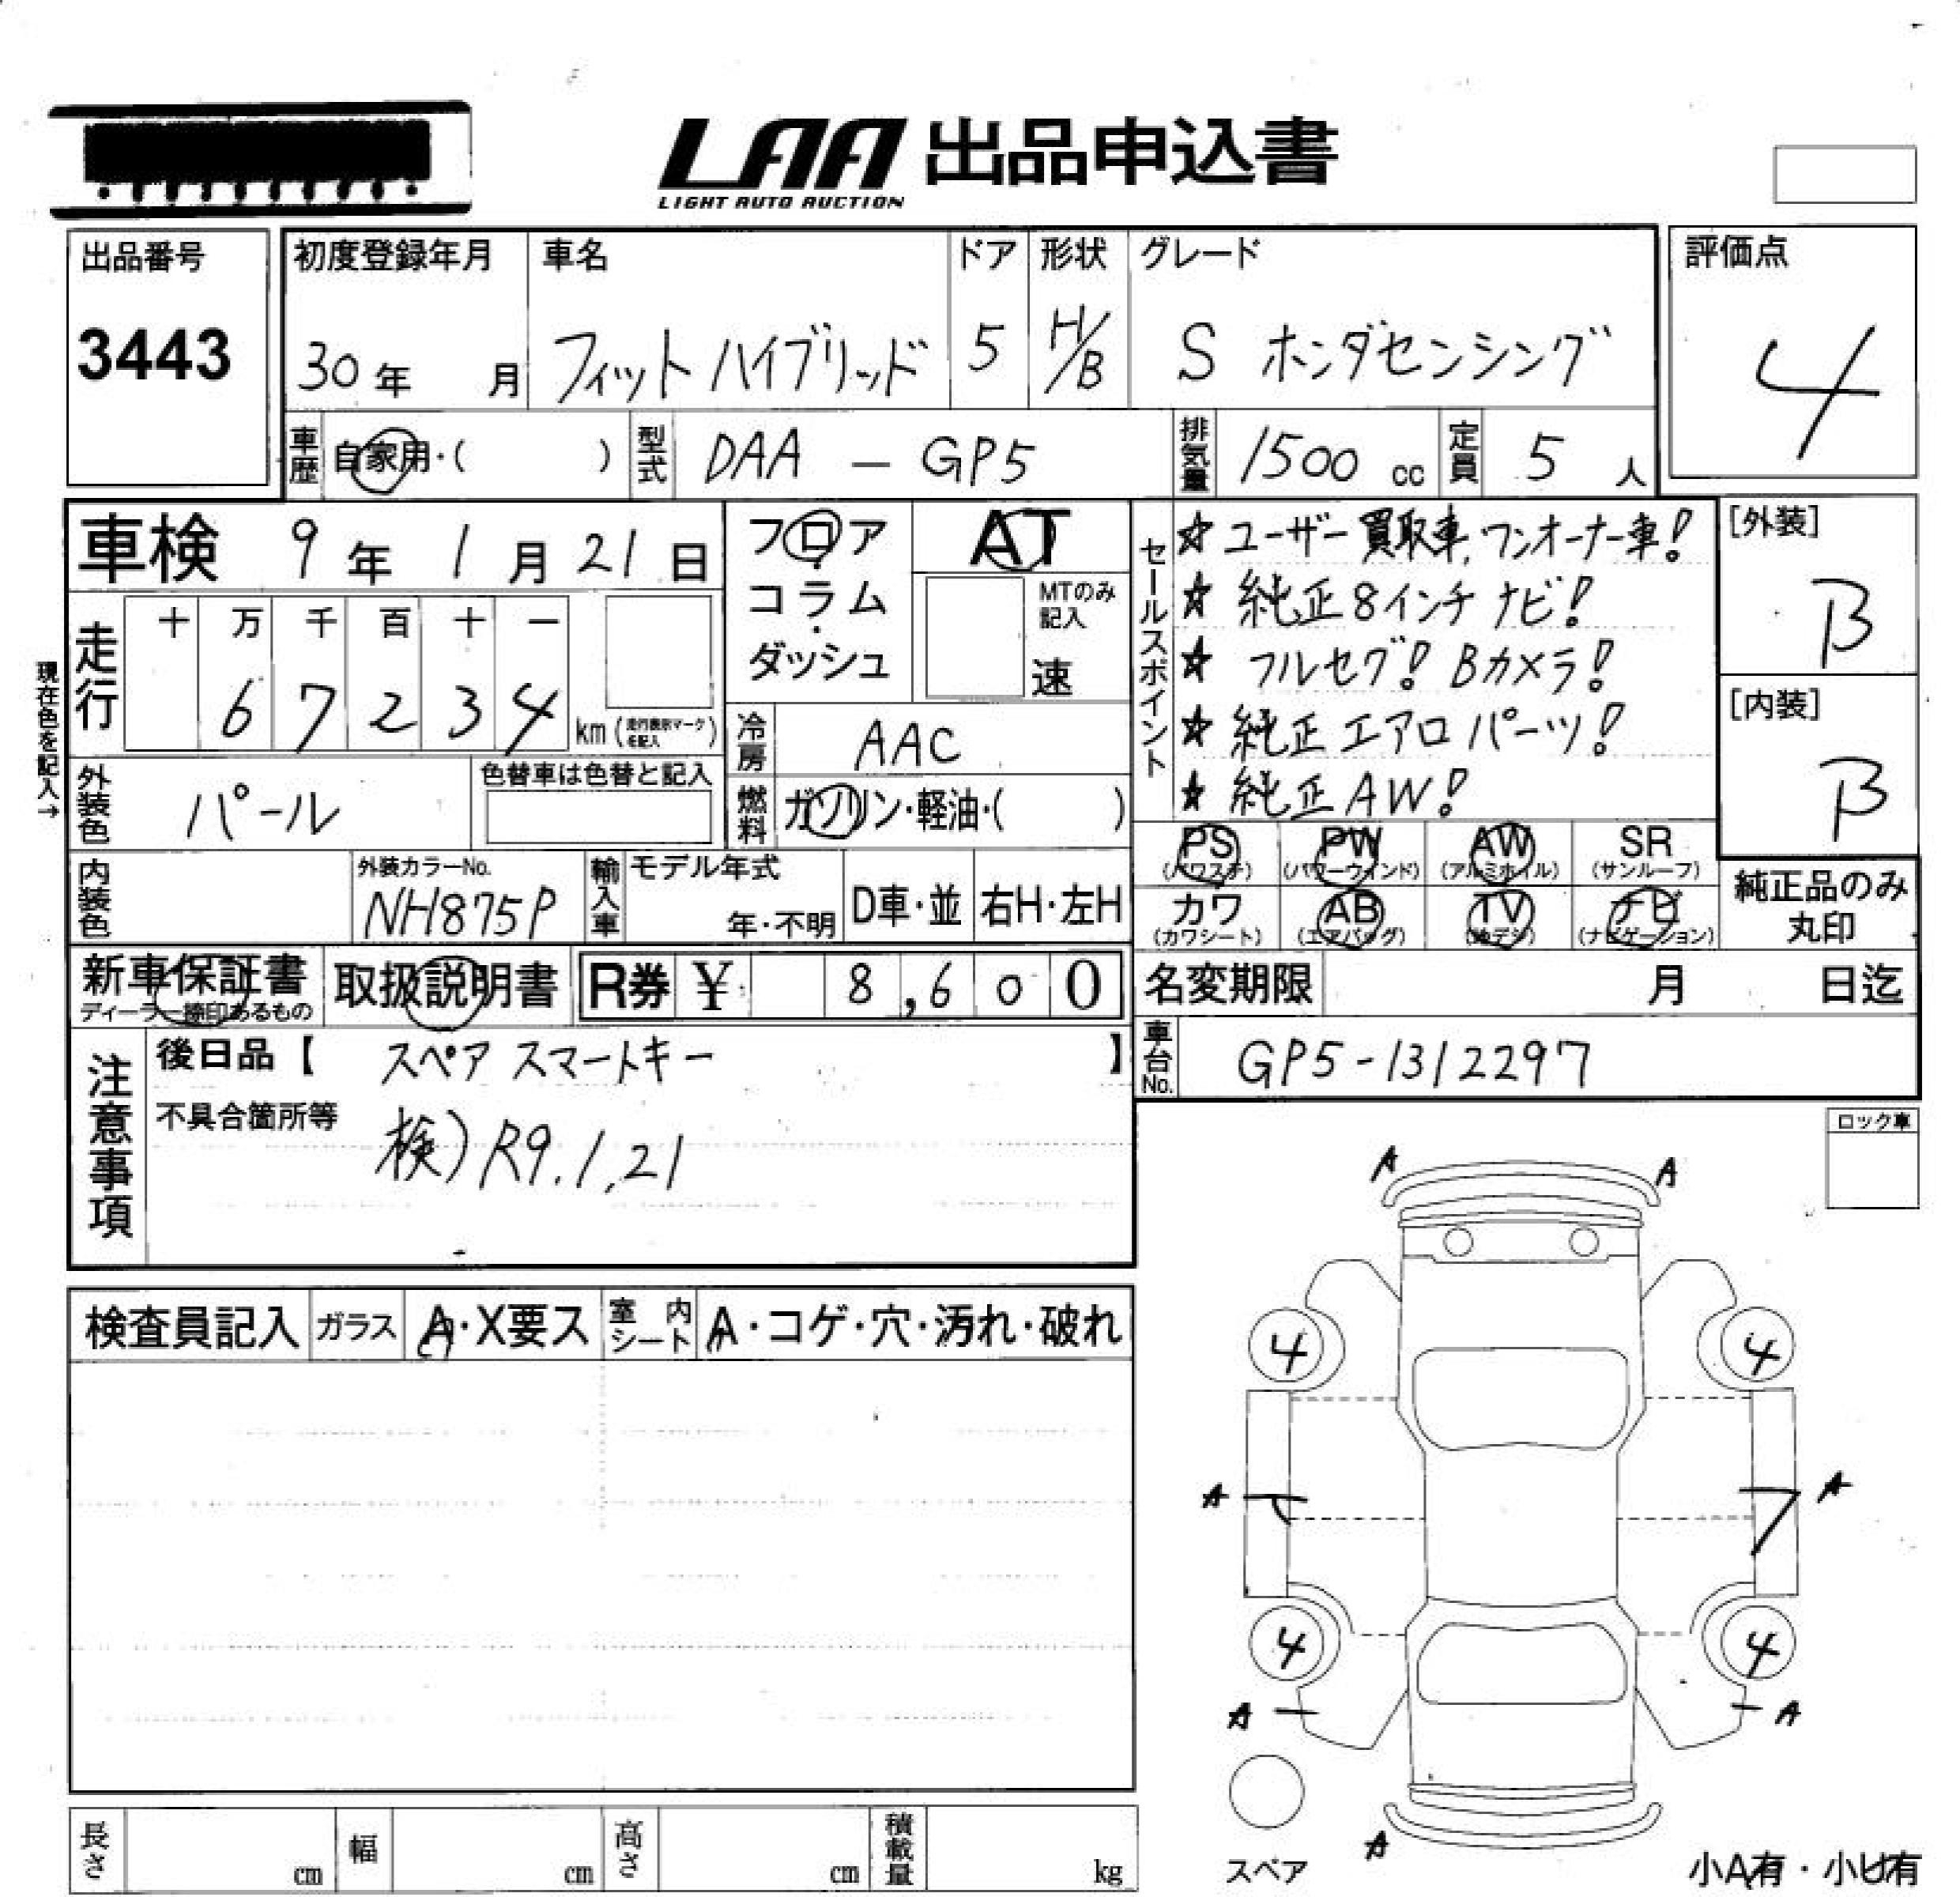 LAA 出品申込書
LIGHT AUTO AUCTION
出品番号
3443
初度登録年月
30年 月
車名
フィットハイブリッド
ドア
5
形状
H/B
グレード
S ホンダセンシング
評価点
4
車歴 自家用・( )
型式 DAA - GP5
排気量 1500 cc
定員 5 人
車検 9年 1月 21日
フロア・コラム・ダッシュ
AT
MTのみ記入
速
セールスポイント
☆ユーザー買取車,ワンオーナー車!
☆純正8インチナビ!
☆フルセグ! Bカメラ!
☆純正エアロパーツ!
☆純正AW!
[外装]
B
[内装]
B
現在色を記入→
走行
十 万 千 百 十 一
6 7 2 3 4
km(走行表示マークを記入)
冷房 AAC
燃料 ガソリン・軽油・( )
外装色 パール
色替車は色替と記入
内装色
外装カラーNo.
NH875P
輸入車
モデル年式
年・不明
D車・並
右H・左H
PS (パワステ)
PW (パワーウインド)
AW (アルミホイル)
SR (サンルーフ)
カワ (カワシート)
AB (エアバッグ)
TV (地デジ)
ナビ (ナビゲーション)
純正品のみ丸印
新車保証書
ディーラー捺印あるもの
取扱説明書
R券 ¥ 8,600
名変期限 月 日迄
車台No. GP5-1312297
注意事項
後日品【 スペアスマートキー 】
不具合箇所等
検)R9.1,21
ロック車
検査員記入
ガラス A・X要ス
室内シート A・コゲ・穴・汚れ・破れ
A A
4 4
A A
4 4
A A
A
スペア
小A有・小U有
長さ cm
幅 cm
高さ cm
積載量 kg